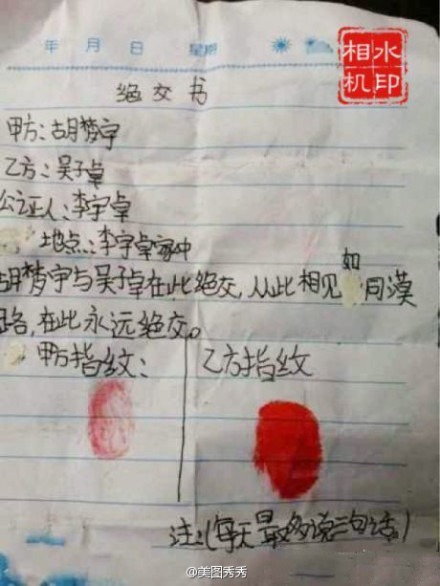 年 月 日 星期
水印
相机
绝交书
甲方:胡梦宇
乙方:吴子卓
公证人:李宇卓
地点:李宇卓家中
胡梦宇与吴子卓在此绝交,从此相见如同漠
路,在此永远绝交。
甲方指纹:
乙方指纹
注:(每天最多说三句话。)
@美图秀秀